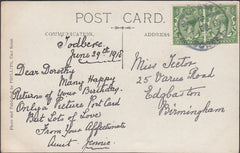 POST CARD.
COMMUNICATION.
ADDRESS
Todbere
June 29th 1918
Dear Dorothy
Many Happy
Returns of your Birthday.
Only a Picture Post Card
But Lots of Love
From Your Affectionate
Aunt Jennie
Miss Teeton
25 Varies Road
Edgbaston
Birmingham